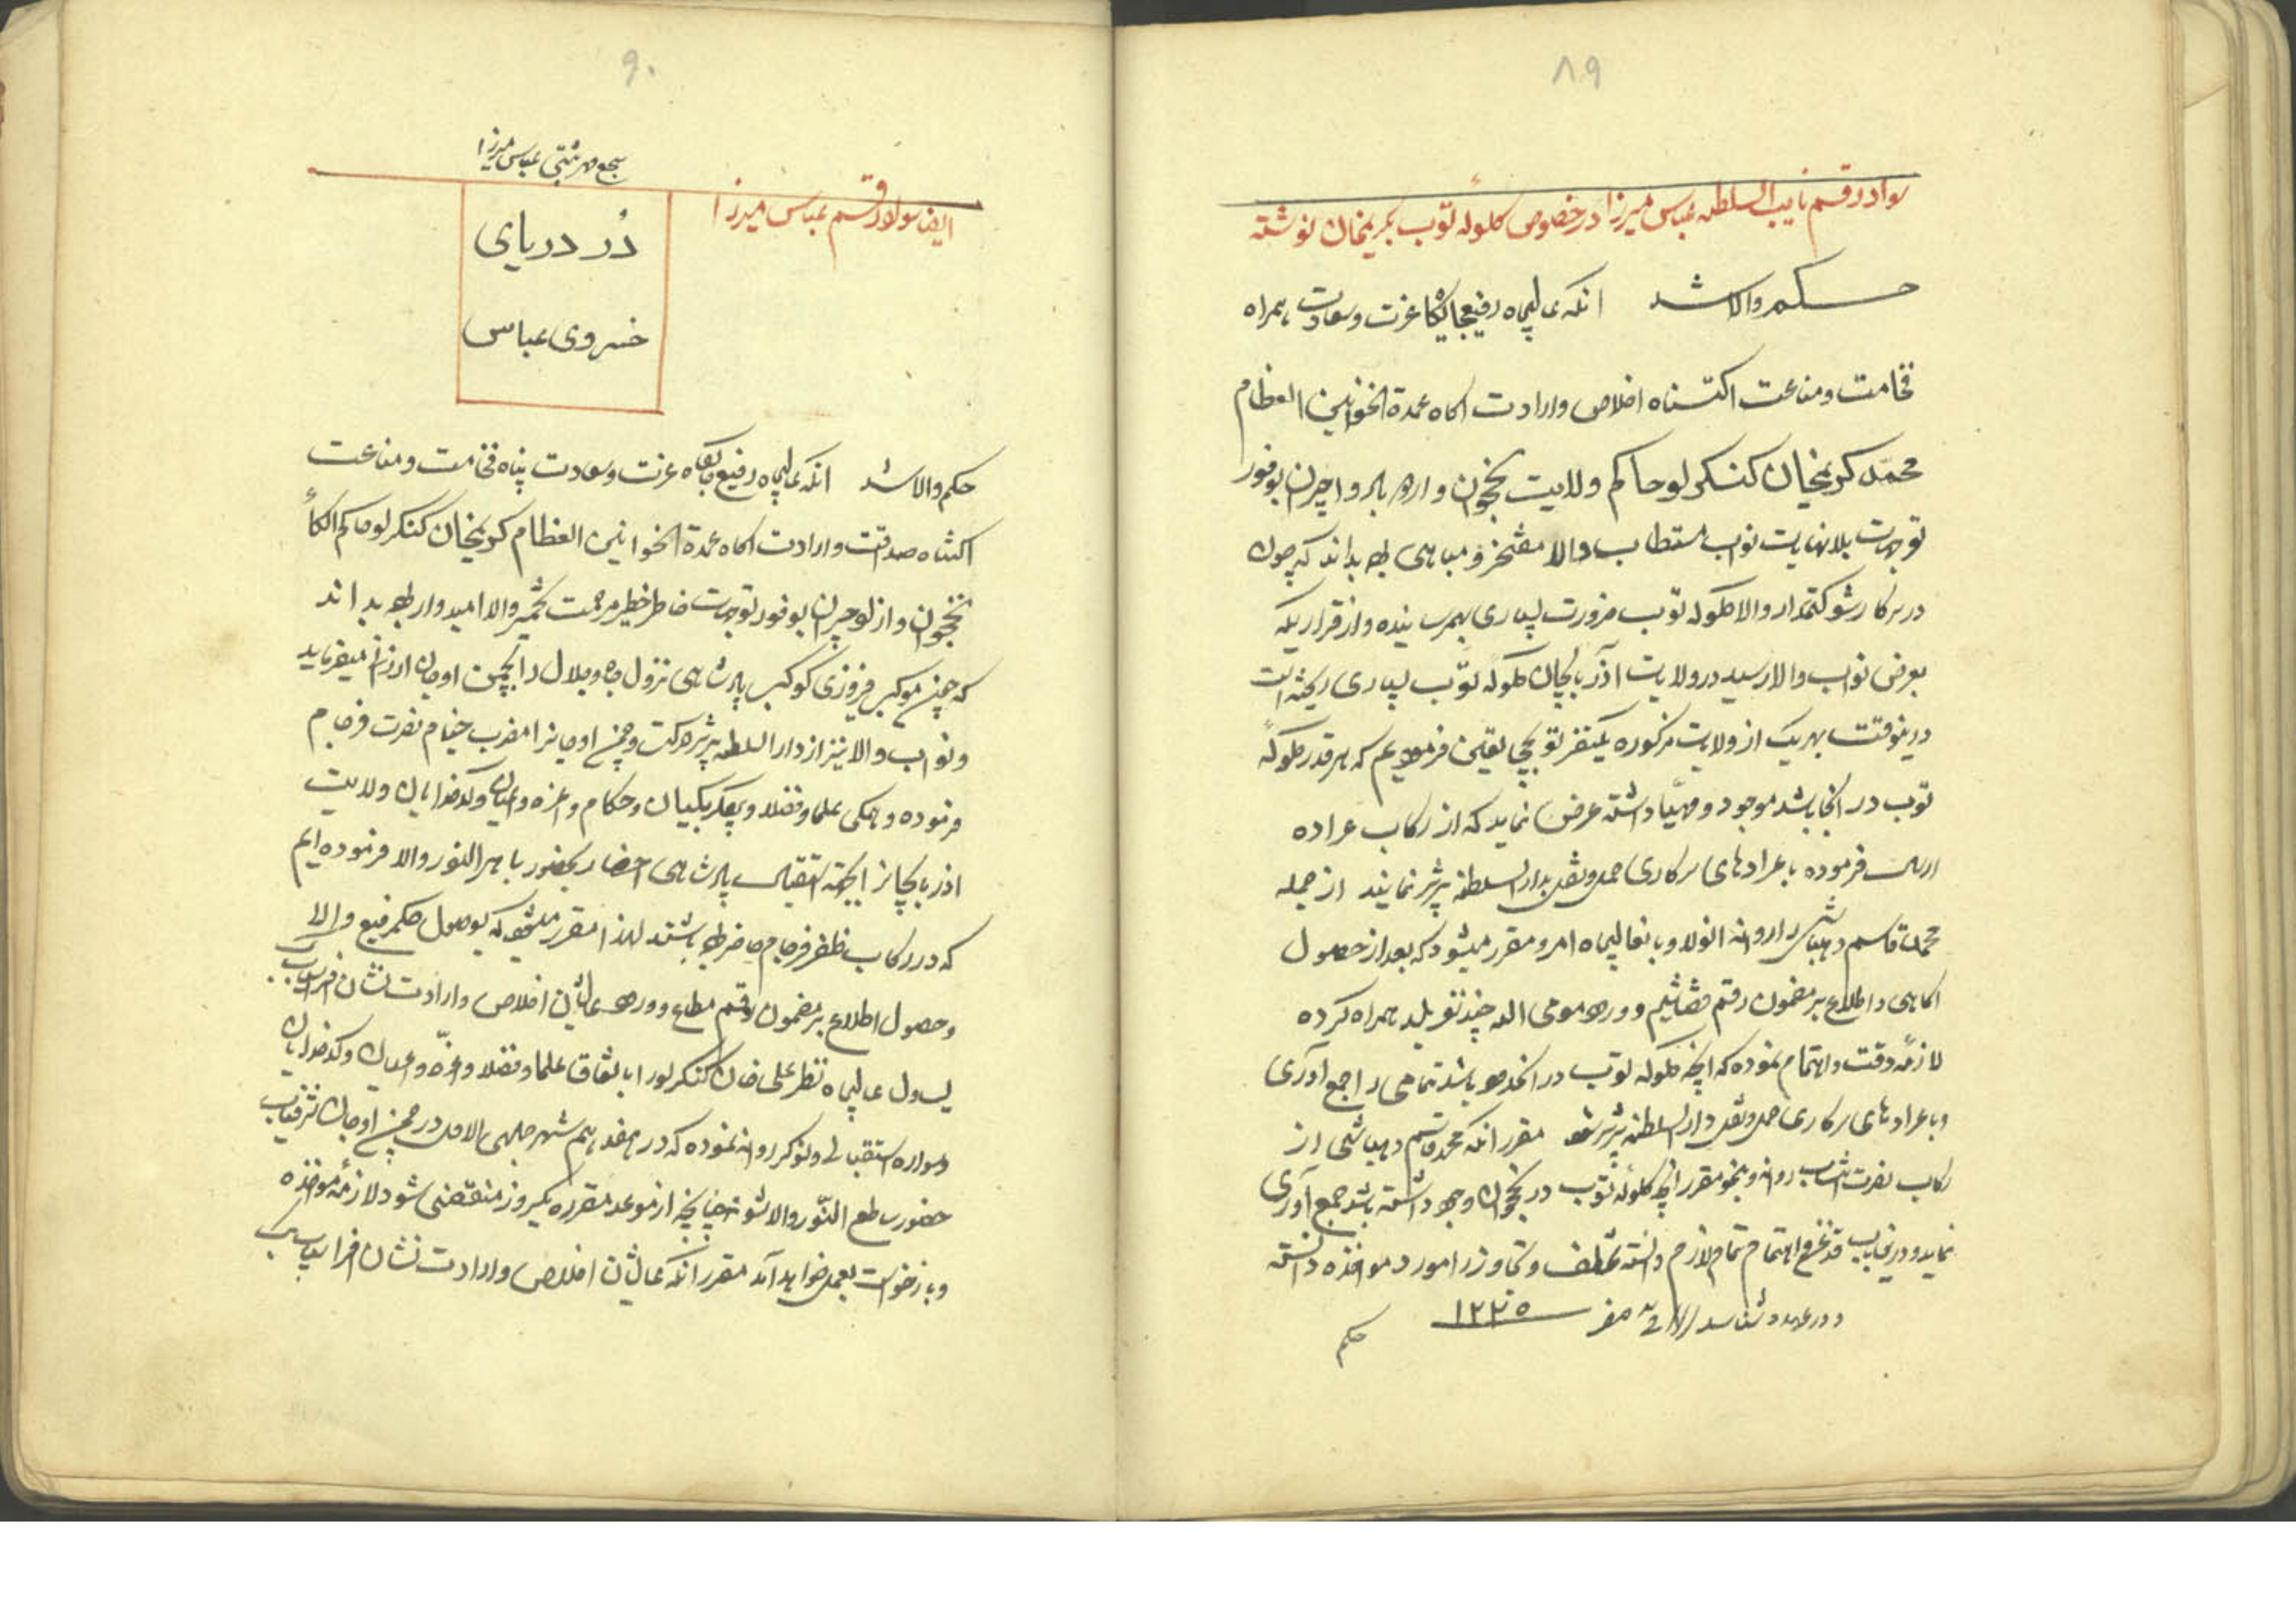 ۸۹
سواد رقم نایب السلطنه عباس میرزا در خصوص کلوله توپ بکریمخان نوشته
حکم والا شد انکه عالیجاه رفیع جایگاه عزت و سعادت همراه
فخامت و مناعت اکتناه اخلاص و ارادت اکاه عمدة الخوانین العظام
محمد کریمخان کنکرلو حاکم ولایت نخجوان و بوفور
توجهات بلانهایت نواب مستطاب والا مفتخر و مباهی بوده بداند که چون
در سرکار شوکتمدار والا کلوله توپ ضرورت بسیاری بهمرسانیده و از قراریکه
بعرض نواب والا رسید در ولایت آذربایجان کلوله توپ بسیاری ریخته است
درینوقت بهریک از ولایت مزکوره یکنفر توپچی تعیین فرموده‌یم که هر قدر کلوله
توپ در انجا باشد موجود و مهیا داشته عرض نماید که از رکاب عراده
ارسال فرموده با عرادهای سرکاری حمل و نقل بدار السلطنه تبریز نمایند از جمله
محمد قاسم دهباشی را روانه انولا و بانعالیجاه امر و مقرر میشود که بعد از حصول
اکاهی و اطلاع بر مضمون رقم قضا شیم و ورود مومی الیه چند نفر بلد همراه کرده
لازمه دقت و اهتمام نموده که انچه کلوله توپ در انحدود باشد تمامی را جمع آوری
و با عرادهای سرکاری حمل و نقل دار السلطنه تبریز شود مقرر انکه محمد قاسم دهباشی از
رکاب نصرت انتساب روانه و بنحو مقرر انچه کلوله توپ در نخجوان وجود داشته باشد جمع آوری
نماید و درینباب قدغن و اهتمام تمام لازم دانسته تخلف و تجاوز را مورد مواخذه دانسته
و در عهده شناسد صفر ۱۲۲۵
حکم
۹۰
سجع مهر عباس میرزا
ایضا سواد رقم عباس میرزا
دُر دریای
خسروی عباس
حکم والا شد انکه عالیجاه رفیع جایگاه عزت و سعادت پناه فخامت و مناعت
اکتناه صداقت و ارادت اکاه عمدة الخوانین العظام کریمخان کنکرلو حاکم الکاء
نخجوان بوفور توجهات خاطر خطیر مرحمت تخمیر والا امیدوار بوده بداند
که چون موکب فیروزی کوکب پادشاهی نزول جاه و جلال را بچمن اوجان ارزانی میفرماید
و نواب والا نیز از دار السلطنه تبریز حرکت و چمن اوجانرا مضرب خیام نصرت فرجام
فرموده و همکی علما و فضلا و بیکلربیکیان و حکام و اعزه و اعیان و کدخدایان ولایت
اذربایجانرا بجهة استقبال پادشاهی احضار بحضور باهر النور والا فرموده ایم
که در رکاب ظفر فرجام حاضر بوده باشند لهذا مقرر میشود که بوصول حکم رفیع والا
و حصول اطلاع بر مضمون رقم مطاع و ورود عالیشان اخلاص و ارادت نشان افراسیاب
یسول عالیجاه نظر علی خان کنکرلو را باتفاق علما و فضلا و اعزه و اعیان و کدخدایان
و سواره استقبالی و نوکر روانه نموده که در هفدهم شهر جمادی الاول در چمن اوجان شرفیاب
حضور ساطع النور والا شوند چنانچه از موعد مقرره یکروز منقضی شود لازمه مواخذه
و بازخواست بعمل خواهد آمد مقرر انکه عالیشان اخلاص و ارادت نشان افراسیاب بیک